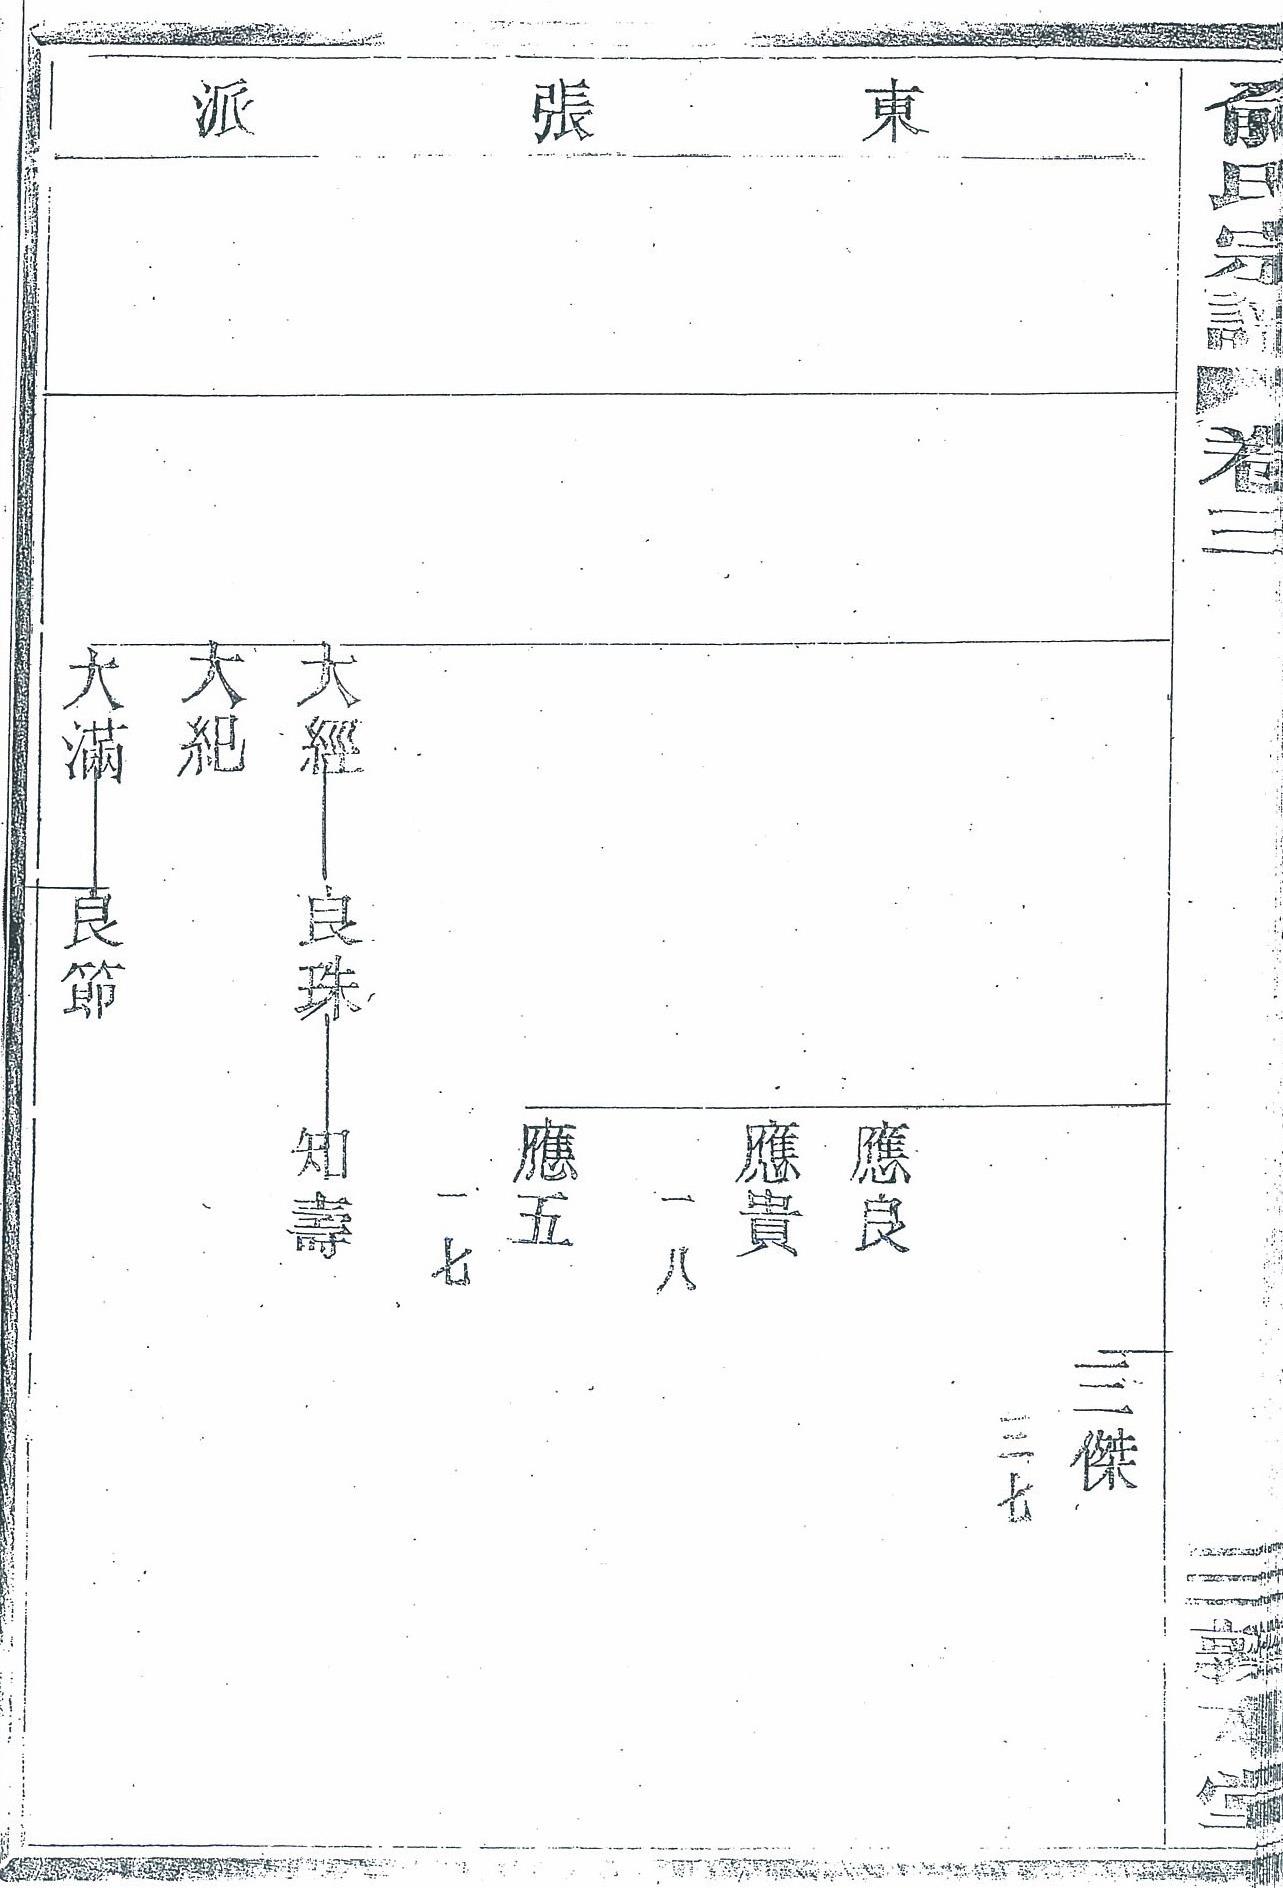 俞氏宗譜 卷三
東張派
三傑
三七
應良
應貴
一八
應五
一七
大經 良珠 知壽
大紀
大滿 良節